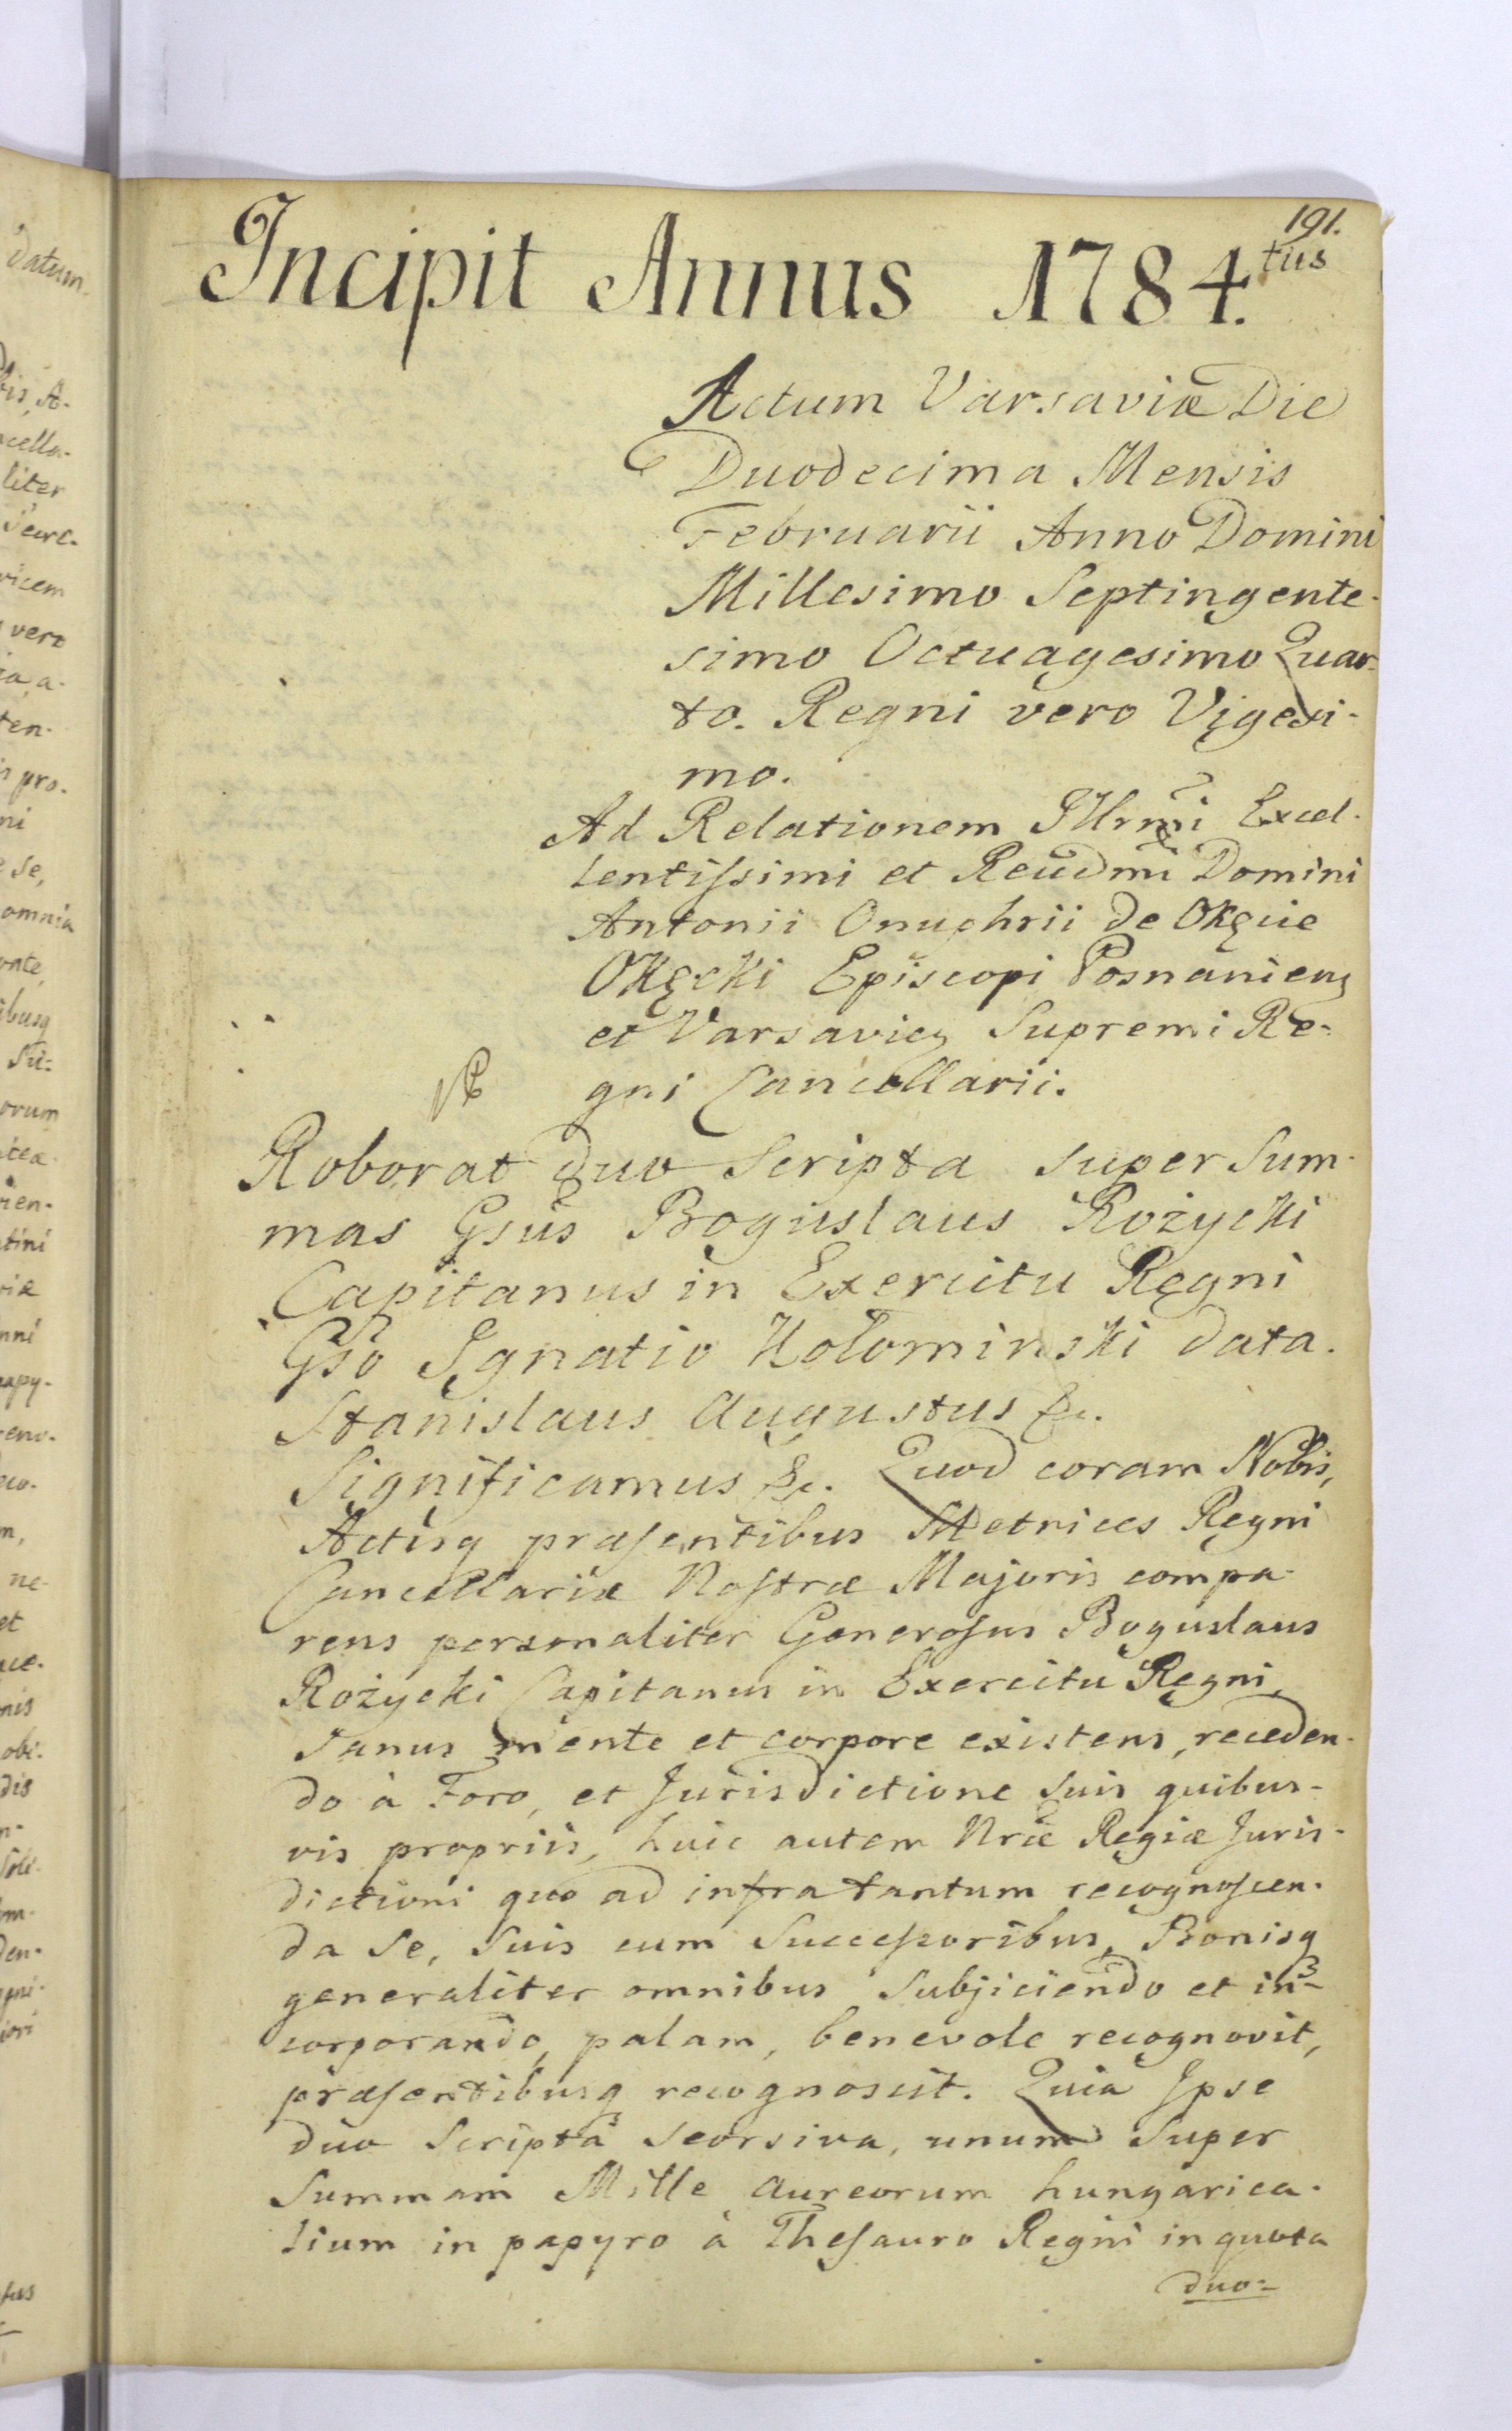 191.
Incipit Annus 1784.tus
Actum Varsaviæ Die
Duodecima Mensis
Februarii Anno Domini
Millesimo Septingente-
simo Octuagesimo Quar-
to. Regni vero Vigesi-
mo.
Ad Relationem Illrmi Excel-
lentiſsimi et Reudmi Domini
Antonii Onuphrii de Okęcie
Okęcki Episcopi Posnanien
et Varsavien Supremi Re-
gni Cancellarii.
Roborat duo Scripta super Sum-
mas Gsus Boguslaus Rożycki
Capitanus in Exercitu Regni
Gso Ignatio Kołominski data.
Stanislaus Augustus &c.
Significamus &c. Quod coram Nobis,
Actisq præſentibus Metrices Regni
Cancellariæ Noſtræ Majoris compa-
rens personaliter Generoſus Boguslaus
Rożycki Capitanus in Exercitu Regni,
Sanus mente et corpore existens, receden-
do à Foro, et Jurisdictione suis quibus-
vis propriis, huic autem Nræ Regiæ Juris-
dictioni quo ad infra tantum recognoſcen-
da se, suis cum Succeſsoribus, Bonisq
generaliter omnibus subjiciendo et in-
corporando, palam, benevole recognovit,
præſentibusq recognoscit. Quia Ipse
duo Scripta seorsiva, unum super
Summam Mille Aureorum hungarica-
lium in papyro à Theſauro Regni in quota
duo-
datum.
bis, A-
ncella-
liter
vicem
vero
ia, a-
ten-
pro-
ni
se,
omnia
ibusq
Su-
orum
itea
rien-
tini
riæ
nni
papy-
ne-
et
nis
obi-
dis
den-